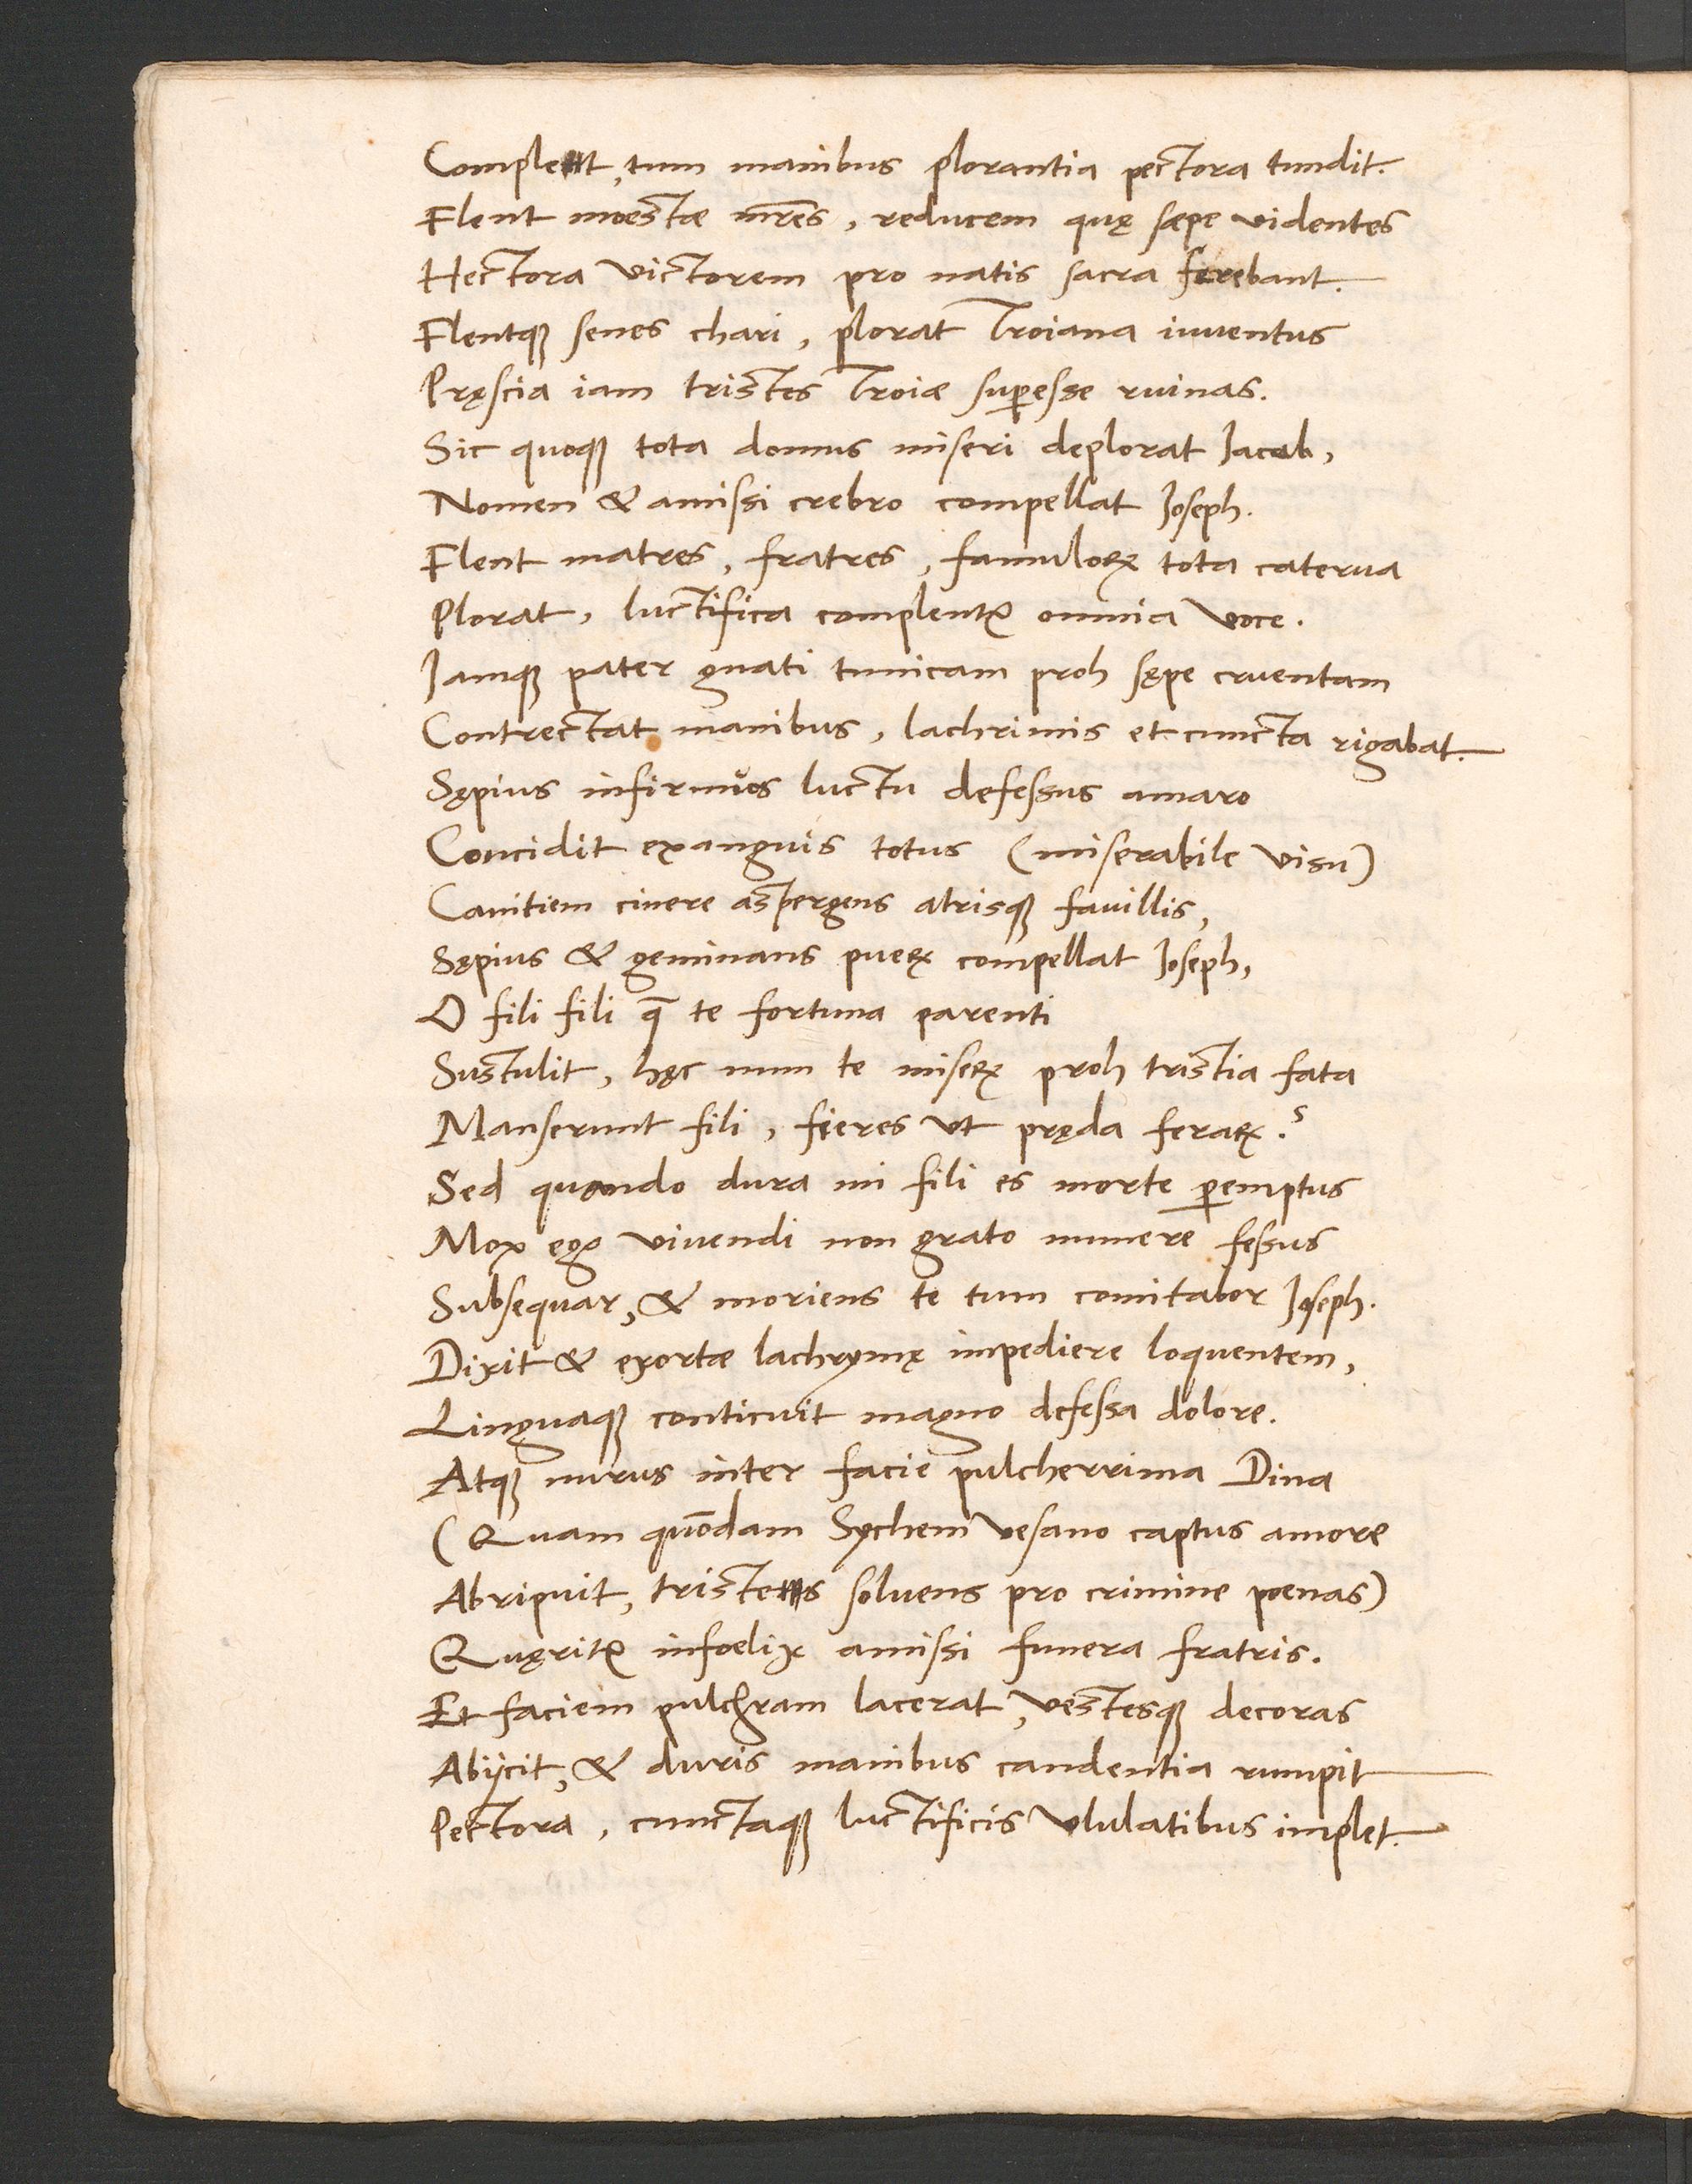 Complet, tum manibus plorantia pectora tundit.
Flent moestæ mr̃es, reducem quę sæpe videntes
Hectora victorem pro natis sacra ferebant.
Flentqꝫ senes chari, plorat Troiana iuventus
Pręscia iam tristes Troiæ suꝑesse ruinas.
Sic quoqꝫ tota domus miseri deplorat Iacob,
Nomen & amissi crebro compellat Ioseph.
Flent matres, fratres, famuloꝝ tota caterva
Plorat, luctifica complentᷣ omnia voce.
Iamqꝫ pater gnati tunicam proh sępe cruentam
Contrectat manibus, lachrimis et cuncta rigabat.
Sępius infirmos luctu defessus amaro
Concidit exanguis totus (miserabile visu)
Canitiem cinere aspergens atrisqꝫ favillis,
Sępius & geminans pueꝝ compellat Ioseph,
O fili fili q̄ te fortuna parenti
Sustulit, hęc num te miseꝝ proh tristia fata
Manserunt fili, fieres vt pręda feraꝝ?
Sed quando dura mi fili es morte ꝑemptus
Mox ego vivendi non grato munere fessus
Subsequar, & moriens te tum comitabor Ioseph.
Dixit & exortæ lachrymę impediere loquentem,
Linguaqꝫ conticuit magno defessa dolore.
Atqꝫ nurus inter facie pulcherrima Dina
(Quam quōdam Sychem vesano captus amore
Abripuit, tristes solvens pro crimine poenas)
Quęritᷣ infoelix amissi funera fratris.
Et faciem pulchram lacerat, vestesqꝫ decoras
Abijcit, & duris manibus candentia rumpit
Pectora, cunctaqꝫ luctificis vlulatibus implet.